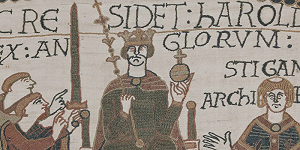 C RE SIDET: hAROL
EX: AN GLORVM:
STIGAN
ARChI